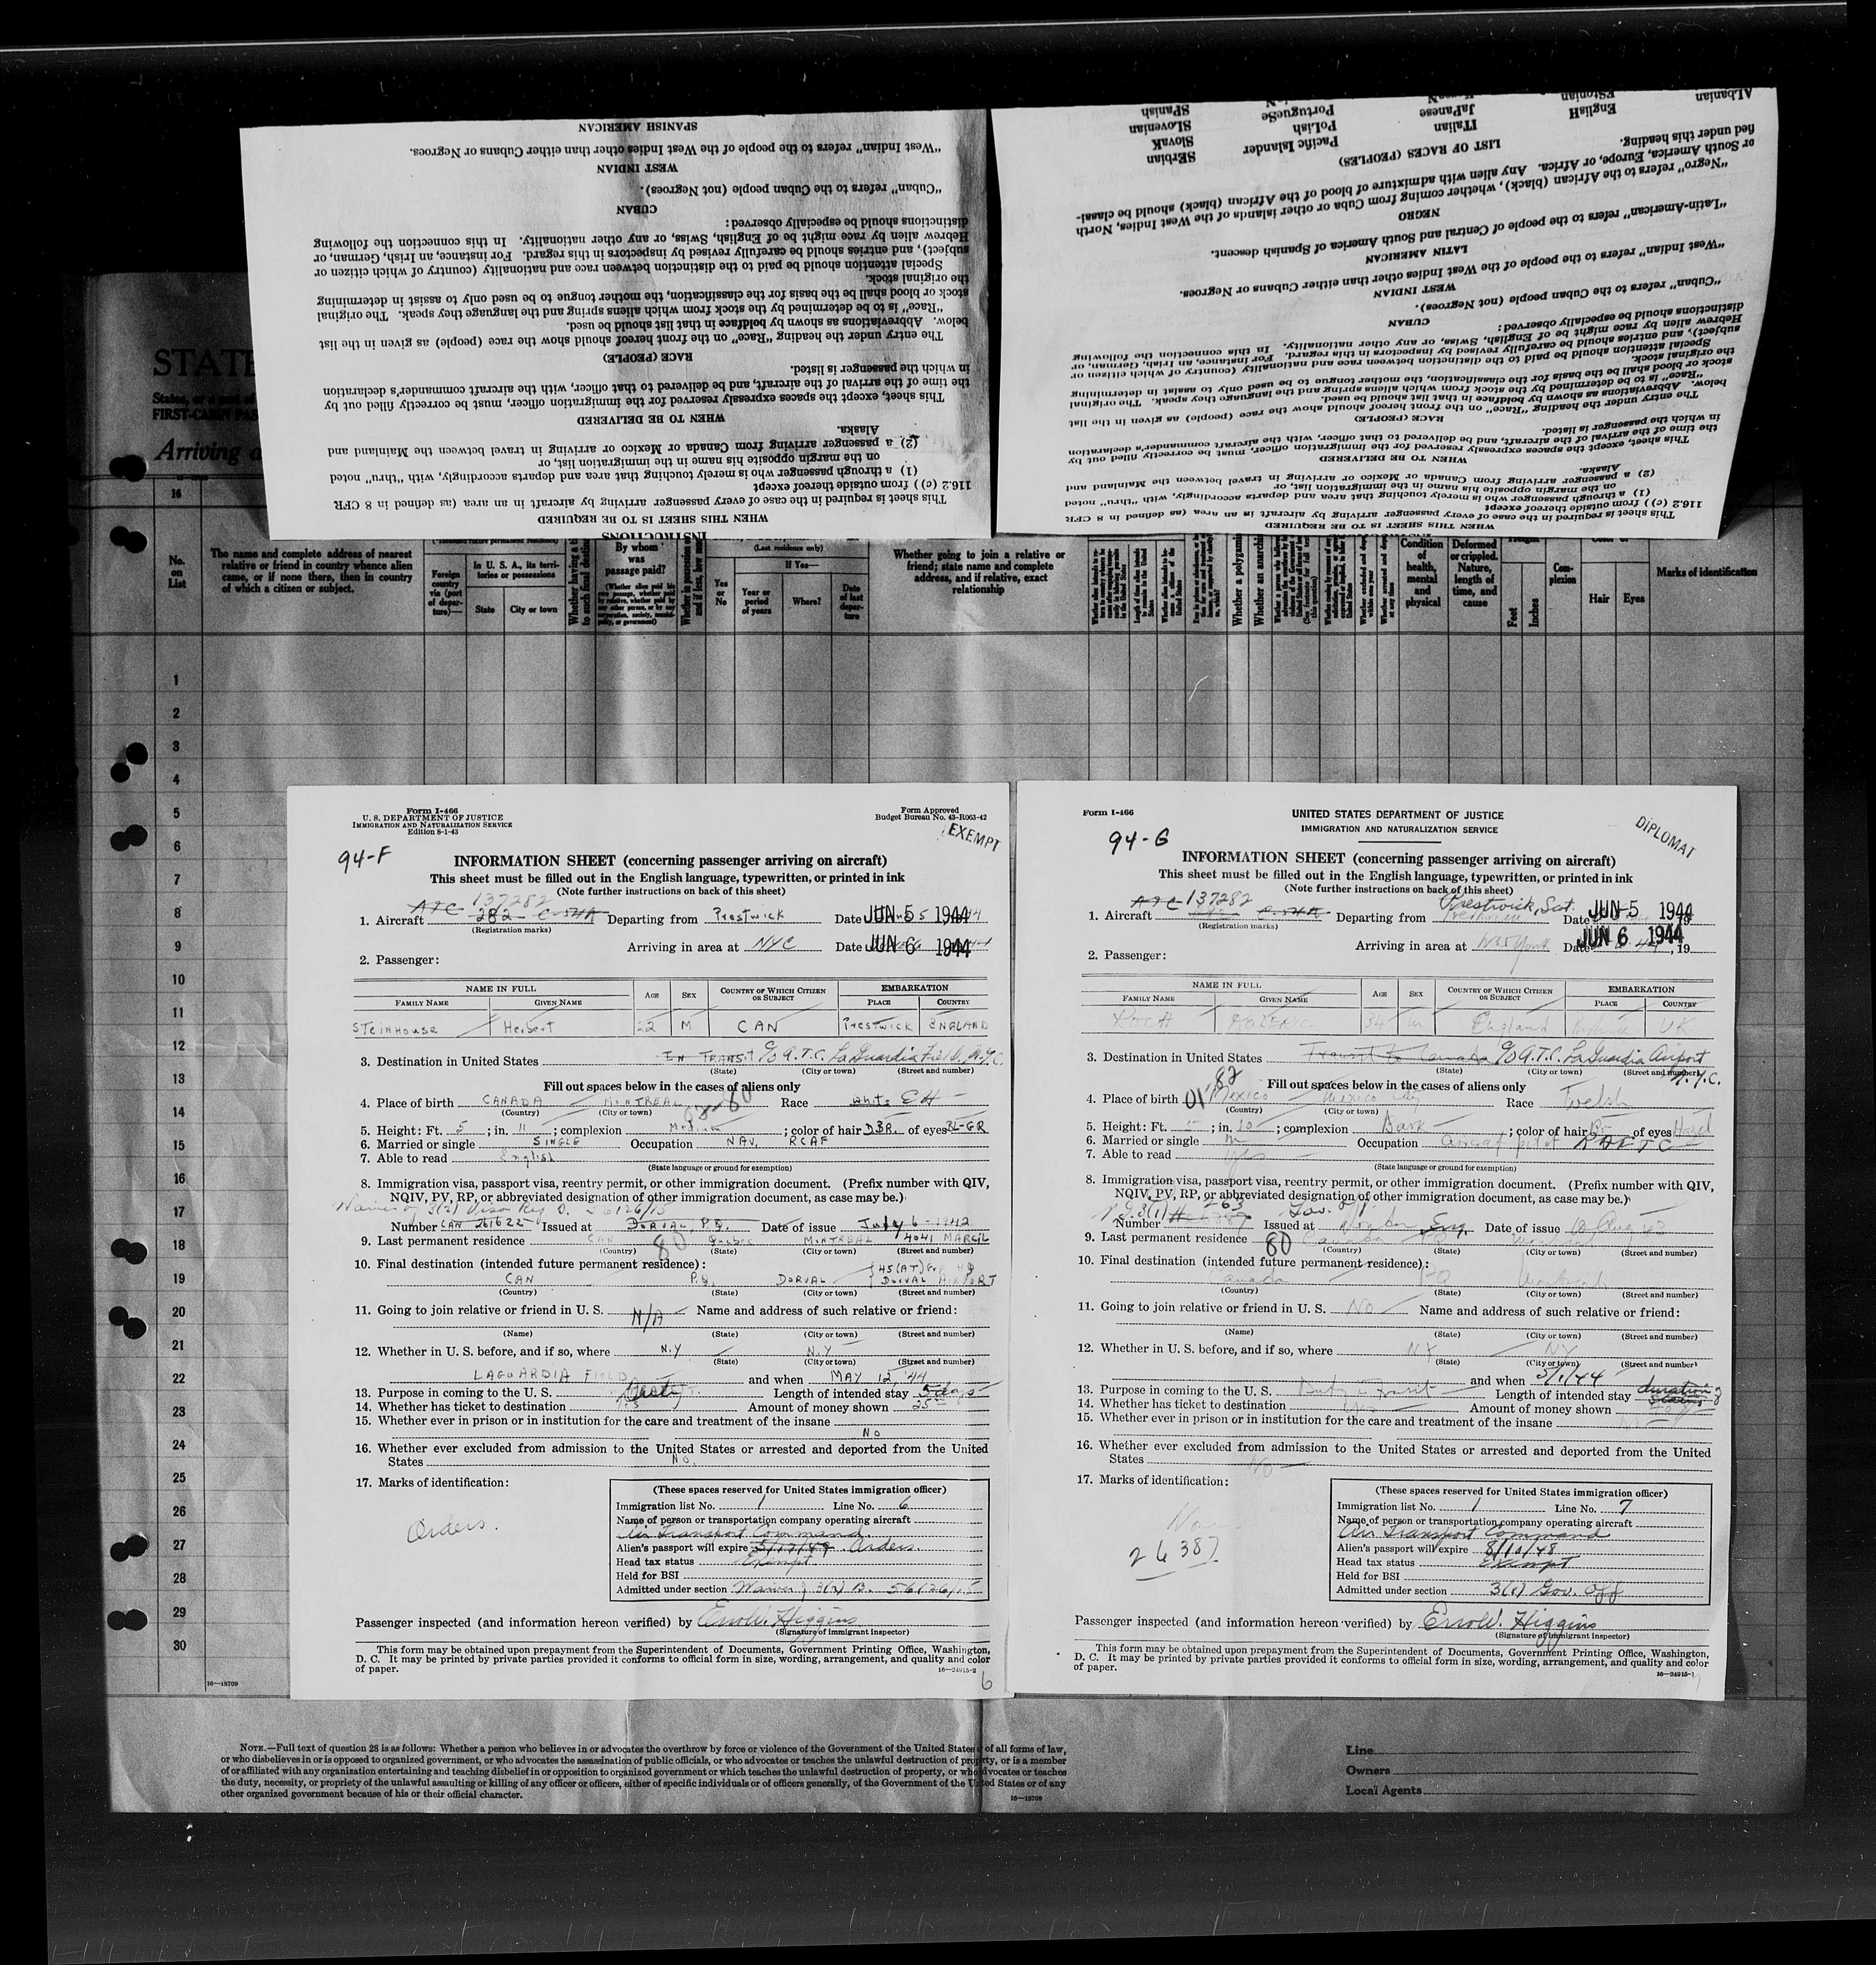 SPANISH AMERICAN
"West Indian" refers to the people of the West Indies other than either Cubans or Negroes.
WEST INDIAN
"Cuban" refers to the Cuban people (not Negroes).
CUBAN
distinctions should be especially observed:
Hebrew alien by race might be of English, Swiss, or any other nationality. In this connection the following
subject), and entries should be carefully revised by inspectors in this regard. For instance, an Irish, German, or
Special attention should be paid to the distinction between race and nationality (country of which citizen or
the original stock.
stock or blood shall be the basis for the classification, the mother tongue to be used only to assist in determining
"Race" is to be determined by the stock from which aliens spring and the language they speak. The original
below. Abbreviations as shown by boldface in that list should be used.
The entry under the heading "Race" on the front hereof should show the race (people) as given in the list
RACE (PEOPLE)
in which the passenger is listed.
the time of the arrival of the aircraft, and be delivered to that officer, with the aircraft commander's declaration
This sheet, except the spaces expressly reserved for the immigration officer, must be correctly filled out by
WHEN TO BE DELIVERED
Alaska.
(2) a passenger arriving from Canada or Mexico or arriving in travel between the Mainland and
on the margin opposite his name in the immigration list, or
(1) a through passenger who is merely touching that area and departs accordingly, with "thru" noted
116.2 (c)) from outside thereof except
This sheet is required in the case of every passenger arriving by aircraft in an area (as defined in 8 CFR
WHEN THIS SHEET IS TO BE REQUIRED
INSTRUCTIONS
ALbanian EStonian Portuguese SPanish
EnglisH JaPanese PoLish SLovenian
ITalian Pacific Islander SlovaK
SErbian
LIST OF RACES (PEOPLES)
fied under this heading.
or South America, Europe, or Africa. Any alien with admixture of blood of the African (black) should be classi-
"Negro" refers to the African (black), whether coming from Cuba or other islands of the West Indies, North
NEGRO
"Latin-American" refers to the people of Central and South America of Spanish descent.
LATIN AMERICAN
"West Indian" refers to the people of the West Indies other than either Cubans or Negroes.
WEST INDIAN
"Cuban" refers to the Cuban people (not Negroes).
CUBAN
distinctions should be especially observed:
Hebrew alien by race might be of English, Swiss, or any other nationality. In this connection the following
subject), and entries should be carefully revised by inspectors in this regard. For instance, an Irish, German, or
Special attention should be paid to the distinction between race and nationality (country of which citizen or
the original stock.
stock or blood shall be the basis for the classification, the mother tongue to be used only to assist in determining
"Race" is to be determined by the stock from which aliens spring and the language they speak. The original
below. Abbreviations as shown by boldface in that list should be used.
The entry under the heading "Race" on the front hereof should show the race (people) as given in the list
RACE (PEOPLE)
in which the passenger is listed.
the time of the arrival of the aircraft, and be delivered to that officer, with the aircraft commander's declaration
This sheet, except the spaces expressly reserved for the immigration officer, must be correctly filled out by
WHEN TO BE DELIVERED
Alaska.
(2) a passenger arriving from Canada or Mexico or arriving in travel between the Mainland and
on the margin opposite his name in the immigration list, or
(1) a through passenger who is merely touching that area and departs accordingly, with "thru" noted
116.2 (c)) from outside thereof except
This sheet is required in the case of every passenger arriving by aircraft in an area (as defined in 8 CFR
WHEN THIS SHEET IS TO BE REQUIRED
STATE
FIRST-CABIN PAS
Arriving
16
No. on List
The name and complete address of nearest relative or friend in country whence alien came, or if none there, then in country of which a citizen or subject.
Foreign country via (port of departure)—
In U. S. A., its territories or possessions
State
City or town
By whom was passage paid?
Yes or No
(Last residence only)
If Yes—
Year or period of years
Where?
Date of last departure
Whether going to join a relative or friend; state name and complete address, and if relative, exact relationship
Whether a polygamist
Whether an anarchist
Condition of health, mental and physical
Deformed or crippled. Nature, length of time, and cause
Feet
Inches
Complexion
Hair
Eyes
Marks of identification
1
2
3
4
5
6
7
8
9
10
11
12
13
14
15
16
17
18
19
20
21
22
23
24
25
26
27
28
29
30
16—18709
Form I-466
U. S. DEPARTMENT OF JUSTICE
IMMIGRATION AND NATURALIZATION SERVICE
Edition 8-1-43
Form Approved
Budget Bureau No. 43-R063-42
EXEMPT
94-F
INFORMATION SHEET (concerning passenger arriving on aircraft)
This sheet must be filled out in the English language, typewritten, or printed in ink
(Note further instructions on back of this sheet)
137282
1. Aircraft ATC 282 C-54A Departing from Prestwick Date JUN 5 1944
(Registration marks)
Arriving in area at NYC Date JUN 6 1944
2. Passenger:
NAME IN FULL AGE SEX COUNTRY OF WHICH CITIZEN OR SUBJECT EMBARKATION
FAMILY NAME GIVEN NAME PLACE COUNTRY
STEINHOUSE Herbert 22 M CAN PRESTWICK ENGLAND
3. Destination in United States IN TRANSIT c/o A.T.C. LaGuardia Field, N.Y.C.
(State) (City or town) (Street and number)
Fill out spaces below in the cases of aliens only
4. Place of birth CANADA MONTREAL Race white EH
(Country) (City or town)
5. Height: Ft. 5; in. 11; complexion Medium; color of hair D.BR. of eyes BL-GR
6. Married or single SINGLE Occupation NAV. RCAF
7. Able to read English
(State language or ground for exemption)
8. Immigration visa, passport visa, reentry permit, or other immigration document. (Prefix number with QIV,
NQIV, PV, RP, or abbreviated designation of other immigration document, as case may be.)
Waiver of 3(2) Visa Reg. D. 56126/15
Number CAN 261622 Issued at DORVAL, P.Q. Date of issue July 6 - 1942
9. Last permanent residence CAN 80 Quebec MONTREAL 4041 MARCIL
(Country) (State) (City or town) (Street and number)
10. Final destination (intended future permanent residence):
45(AT)Gr. HQ
CAN P.Q. DORVAL DORVAL AIRPORT
(Country) (State) (City or town) (Street and number)
11. Going to join relative or friend in U. S. N/A Name and address of such relative or friend:
(Name) (State) (City or town) (Street and number)
12. Whether in U. S. before, and if so, where N.Y N.Y
(State) (City or town) (Street and number)
LAGUARDIA FIELD and when MAY 12, '44
13. Purpose in coming to the U. S. Length of intended stay 5 days
14. Whether has ticket to destination Amount of money shown 25
15. Whether ever in prison or in institution for the care and treatment of the insane
No
16. Whether ever excluded from admission to the United States or arrested and deported from the United
States No.
17. Marks of identification:
Orders.
(These spaces reserved for United States immigration officer)
Immigration list No. 1 Line No. 6
Name of person or transportation company operating aircraft
Air Transport Command.
Alien's passport will expire Orders.
Head tax status Exempt
Held for BSI
Admitted under section Waiver 3(2) D. 56126/15
Passenger inspected (and information hereon verified) by Errol W. Higgins
(Signature of immigrant inspector)
This form may be obtained upon prepayment from the Superintendent of Documents, Government Printing Office, Washington,
D. C. It may be printed by private parties provided it conforms to official form in size, wording, arrangement, and quality and color
of paper.
16—24915-2
6
Form I-466
UNITED STATES DEPARTMENT OF JUSTICE
IMMIGRATION AND NATURALIZATION SERVICE
DIPLOMAT
94-G
INFORMATION SHEET (concerning passenger arriving on aircraft)
This sheet must be filled out in the English language, typewritten, or printed in ink
(Note further instructions on back of this sheet)
1. Aircraft ATC 137282 Departing from Prestwick, Sct. Date JUN 5 1944
(Registration marks)
Arriving in area at New York Date JUN 6 1944, 19
2. Passenger:
NAME IN FULL AGE SEX COUNTRY OF WHICH CITIZEN OR SUBJECT EMBARKATION
FAMILY NAME GIVEN NAME PLACE COUNTRY
34 M England UK
3. Destination in United States Transit to Canada c/o A.T.C. LaGuardia Airport N.Y.C.
(State) (City or town) (Street and number)
82 Fill out spaces below in the cases of aliens only
4. Place of birth 01 Mexico Mexico City Race Welsh
(Country) (City or town)
5. Height: Ft. 5; in. 10; complexion Dark; color of hair Br of eyes Hazel
6. Married or single m Occupation Aircraft pilot RAFTC
7. Able to read Yes
(State language or ground for exemption)
8. Immigration visa, passport visa, reentry permit, or other immigration document. (Prefix number with QIV,
NQIV, PV, RP, or abbreviated designation of other immigration document, as case may be.)
263 Gov. Off.
Number Issued at London Eng. Date of issue 10 Aug 43
9. Last permanent residence 80 Canada
(Country) (State) (City or town) (Street and number)
10. Final destination (intended future permanent residence):
Canada PQ Montreal
(Country) (State) (City or town) (Street and number)
11. Going to join relative or friend in U. S. No Name and address of such relative or friend:
(Name) (State) (City or town) (Street and number)
12. Whether in U. S. before, and if so, where NY NY
(State) (City or town) (Street and number)
and when 5/1/44
13. Purpose in coming to the U. S. Duty in Transit Length of intended stay duration of status
14. Whether has ticket to destination Yes Amount of money shown
15. Whether ever in prison or in institution for the care and treatment of the insane No
16. Whether ever excluded from admission to the United States or arrested and deported from the United
States No
17. Marks of identification:
26387
(These spaces reserved for United States immigration officer)
Immigration list No. 1 Line No. 7
Name of person or transportation company operating aircraft
Air Transport Command
Alien's passport will expire 8/10/48
Head tax status Exempt
Held for BSI
Admitted under section 3(1) Gov. Off
Passenger inspected (and information hereon verified) by Errol W. Higgins
(Signature of immigrant inspector)
This form may be obtained upon prepayment from the Superintendent of Documents, Government Printing Office, Washington,
D. C. It may be printed by private parties provided it conforms to official form in size, wording, arrangement, and quality and color
of paper.
16—24915-1
NOTE.—Full text of question 28 is as follows: Whether a person who believes in or advocates the overthrow by force or violence of the Government of the United States or of all forms of law,
or who disbelieves in or is opposed to organized government, or who advocates the assassination of public officials, or who advocates or teaches the unlawful destruction of property, or is a member
of or affiliated with any organization entertaining and teaching disbelief in or opposition to organized government or which teaches the unlawful destruction of property, or who advocates or teaches
the duty, necessity, or propriety of the unlawful assaulting or killing of any officer or officers, either of specific individuals or of officers generally, of the Government of the United States or of any
other organized government because of his or their official character.
16—18709
Line
Owners
Local Agents